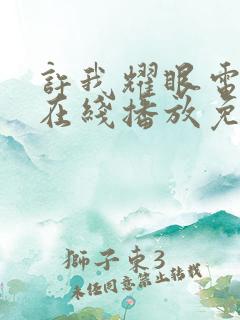 許我耀眼電
在綫播放免
獅子東3
未經同意禁止轉載